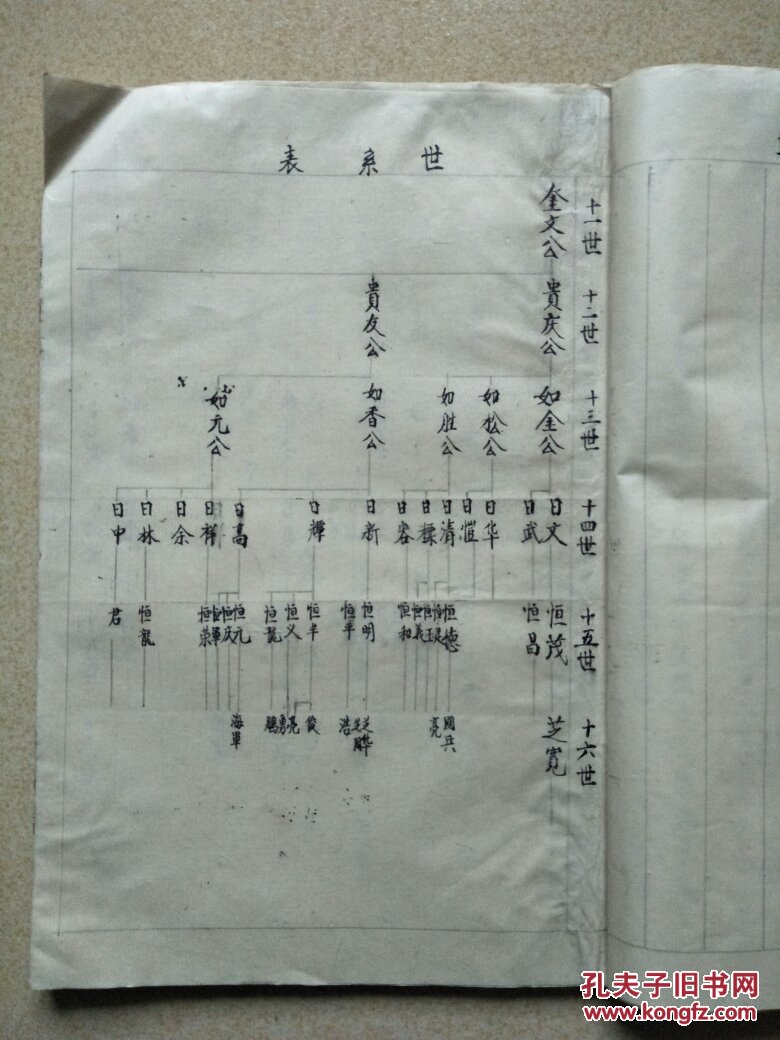 世系表
十一世
奎文公
十二世
貴庆公
貴友公
十三世
如全公
如松公
如胜公
如香公
如元公
x
十四世
日文
日武
日华
日恺
日清
日標
日容
日新
日輝
日高
日祥
日余
日林
日中
十五世
恒茂
恒昌
恒德
恒玉
恒義
恒和
恒明
恒平
恒丰
恒义
恒龍
恒元
恒庆
恒軍
恒荣
恒龍
君
十六世
芝寬
國兵
亮
芝華
芝鵬
浩
俊
亮
勇
鵬
海軍
孔夫子旧书网
www.kongfz.com